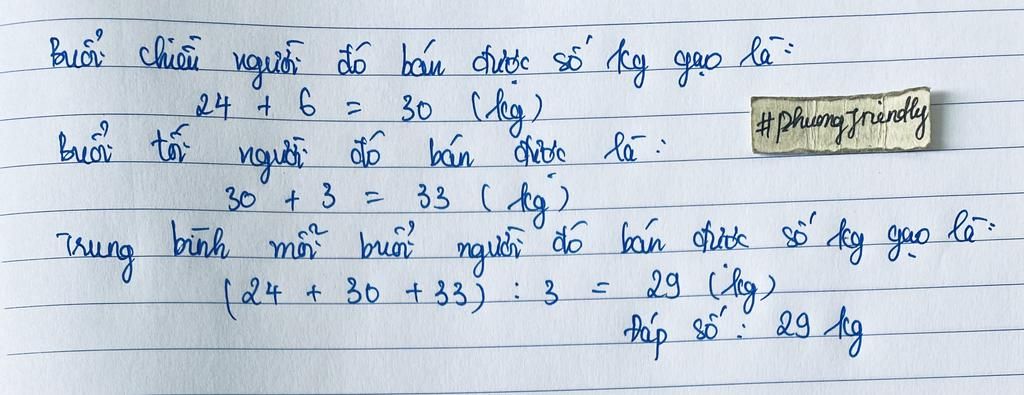 Buổi chiều người đó bán được số kg gạo là:
24 + 6 = 30 (kg)
#phuongfriendly
Buổi tối người đó bán được là:
30 + 3 = 33 (kg)
Trung bình mỗi buổi người đó bán được số kg gạo là:
(24 + 30 + 33) : 3 = 29 (kg)
Đáp số: 29 kg